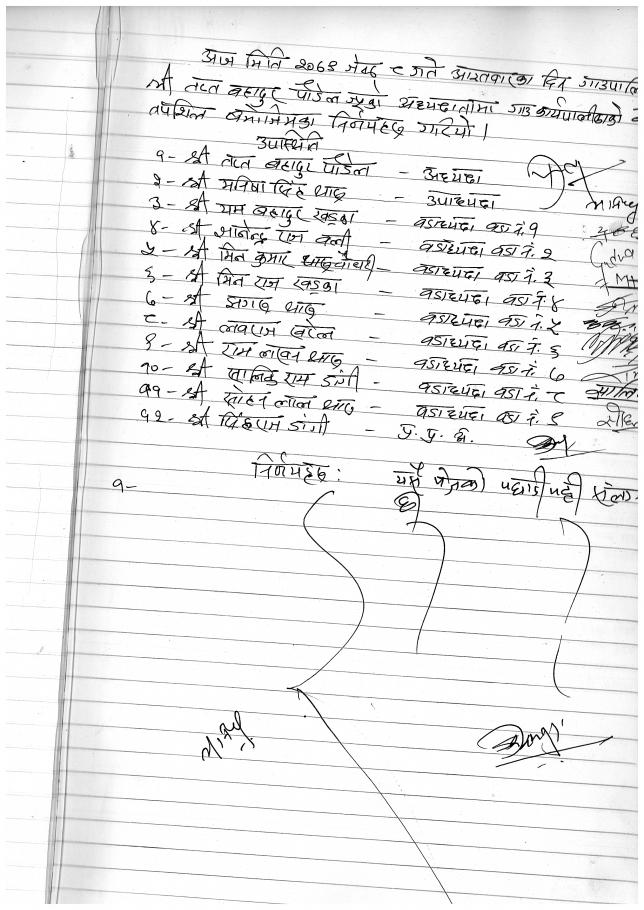 आज मिति २०७९ जेष्ठ ८ गते आइतवारका दिन गाउपालि
श्री तप्त बहादुर पौडेल ज्यूको अध्यक्षतामा गाउ कार्यपालीकाको
तपशिल बमोजिमका निर्णयहरु गरियो ।
उपास्थिति
१- श्री तप्त बहादुर पौडेल - अध्यक्ष
२- श्री मनिषा सिंह थारु - उपाध्यक्ष
३- श्री यम बहादुर खड्का - वडाध्यक्ष वडा नं. १
४- श्री ज्ञानेन्द्र राम वली - वडाध्यक्ष वडा नं. २
५- श्री मिन कुमार थारु चौधरी - वडाध्यक्ष वडा नं. ३
६- श्री मिन राम खड्का - वडाध्यक्ष वडा नं. ४
७- श्री झगरु थारु - वडाध्यक्ष वडा नं. ५
८- श्री लवराज खरेल - वडाध्यक्ष वडा नं. ६
९- श्री राम लखन थारु - वडाध्यक्ष वडा नं. ७
१०- श्री मानिक राम डांगी - वडाध्यक्ष वडा नं. ८
११- श्री सोहन लाल थारु - वडाध्यक्ष वडा नं. ९
१२- श्री सिंहराम डांगी - प्र. प्र. अ.
निर्णयहरु : यसै पेजको पछाडी पट्टी
१-
छ